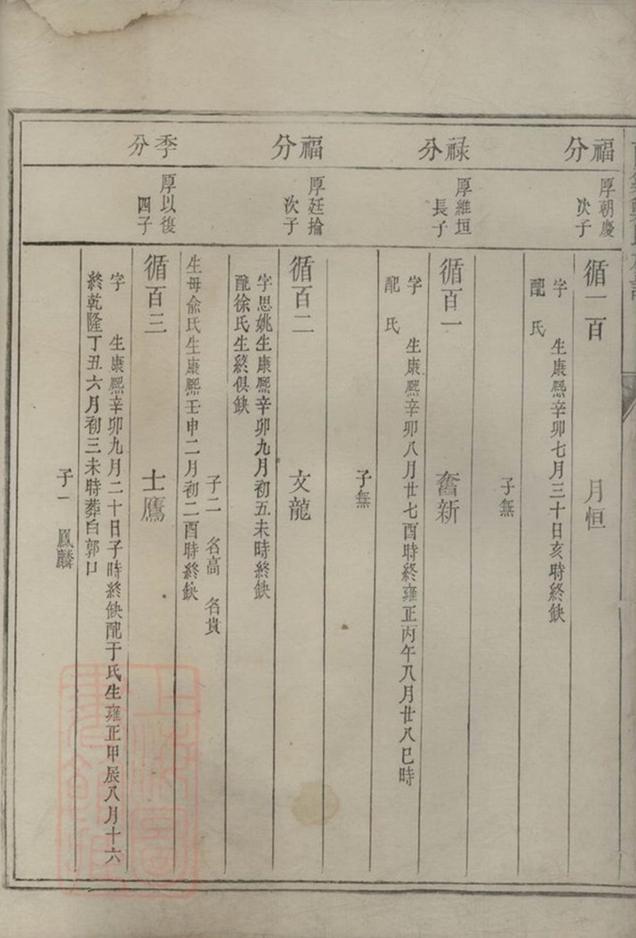 福分
厚朝慶
次子
循一百
月恒
字
生康熈辛卯七月三十日亥時終缺
配氏
子無
禄分
厚維垣
長子
循百一
奮新
字
生康熈辛卯八月廿七酉時終雍正丙午八月廿八巳時
配氏
子無
福分
厚廷掄
次子
循百二
文龍
字思姚生康熈辛卯九月初五未時終缺
配徐氏生終俱缺
子二 名高 名貴
生母俞氏生康熈壬申二月初二酉時終缺
季分
厚以復
四子
循百三
士鷹
字
生康熈辛卯九月二十日子時終缺配于氏生雍正甲辰八月十六
終乾隆丁丑六月初三未時葬白郭口
子一 鳳麟